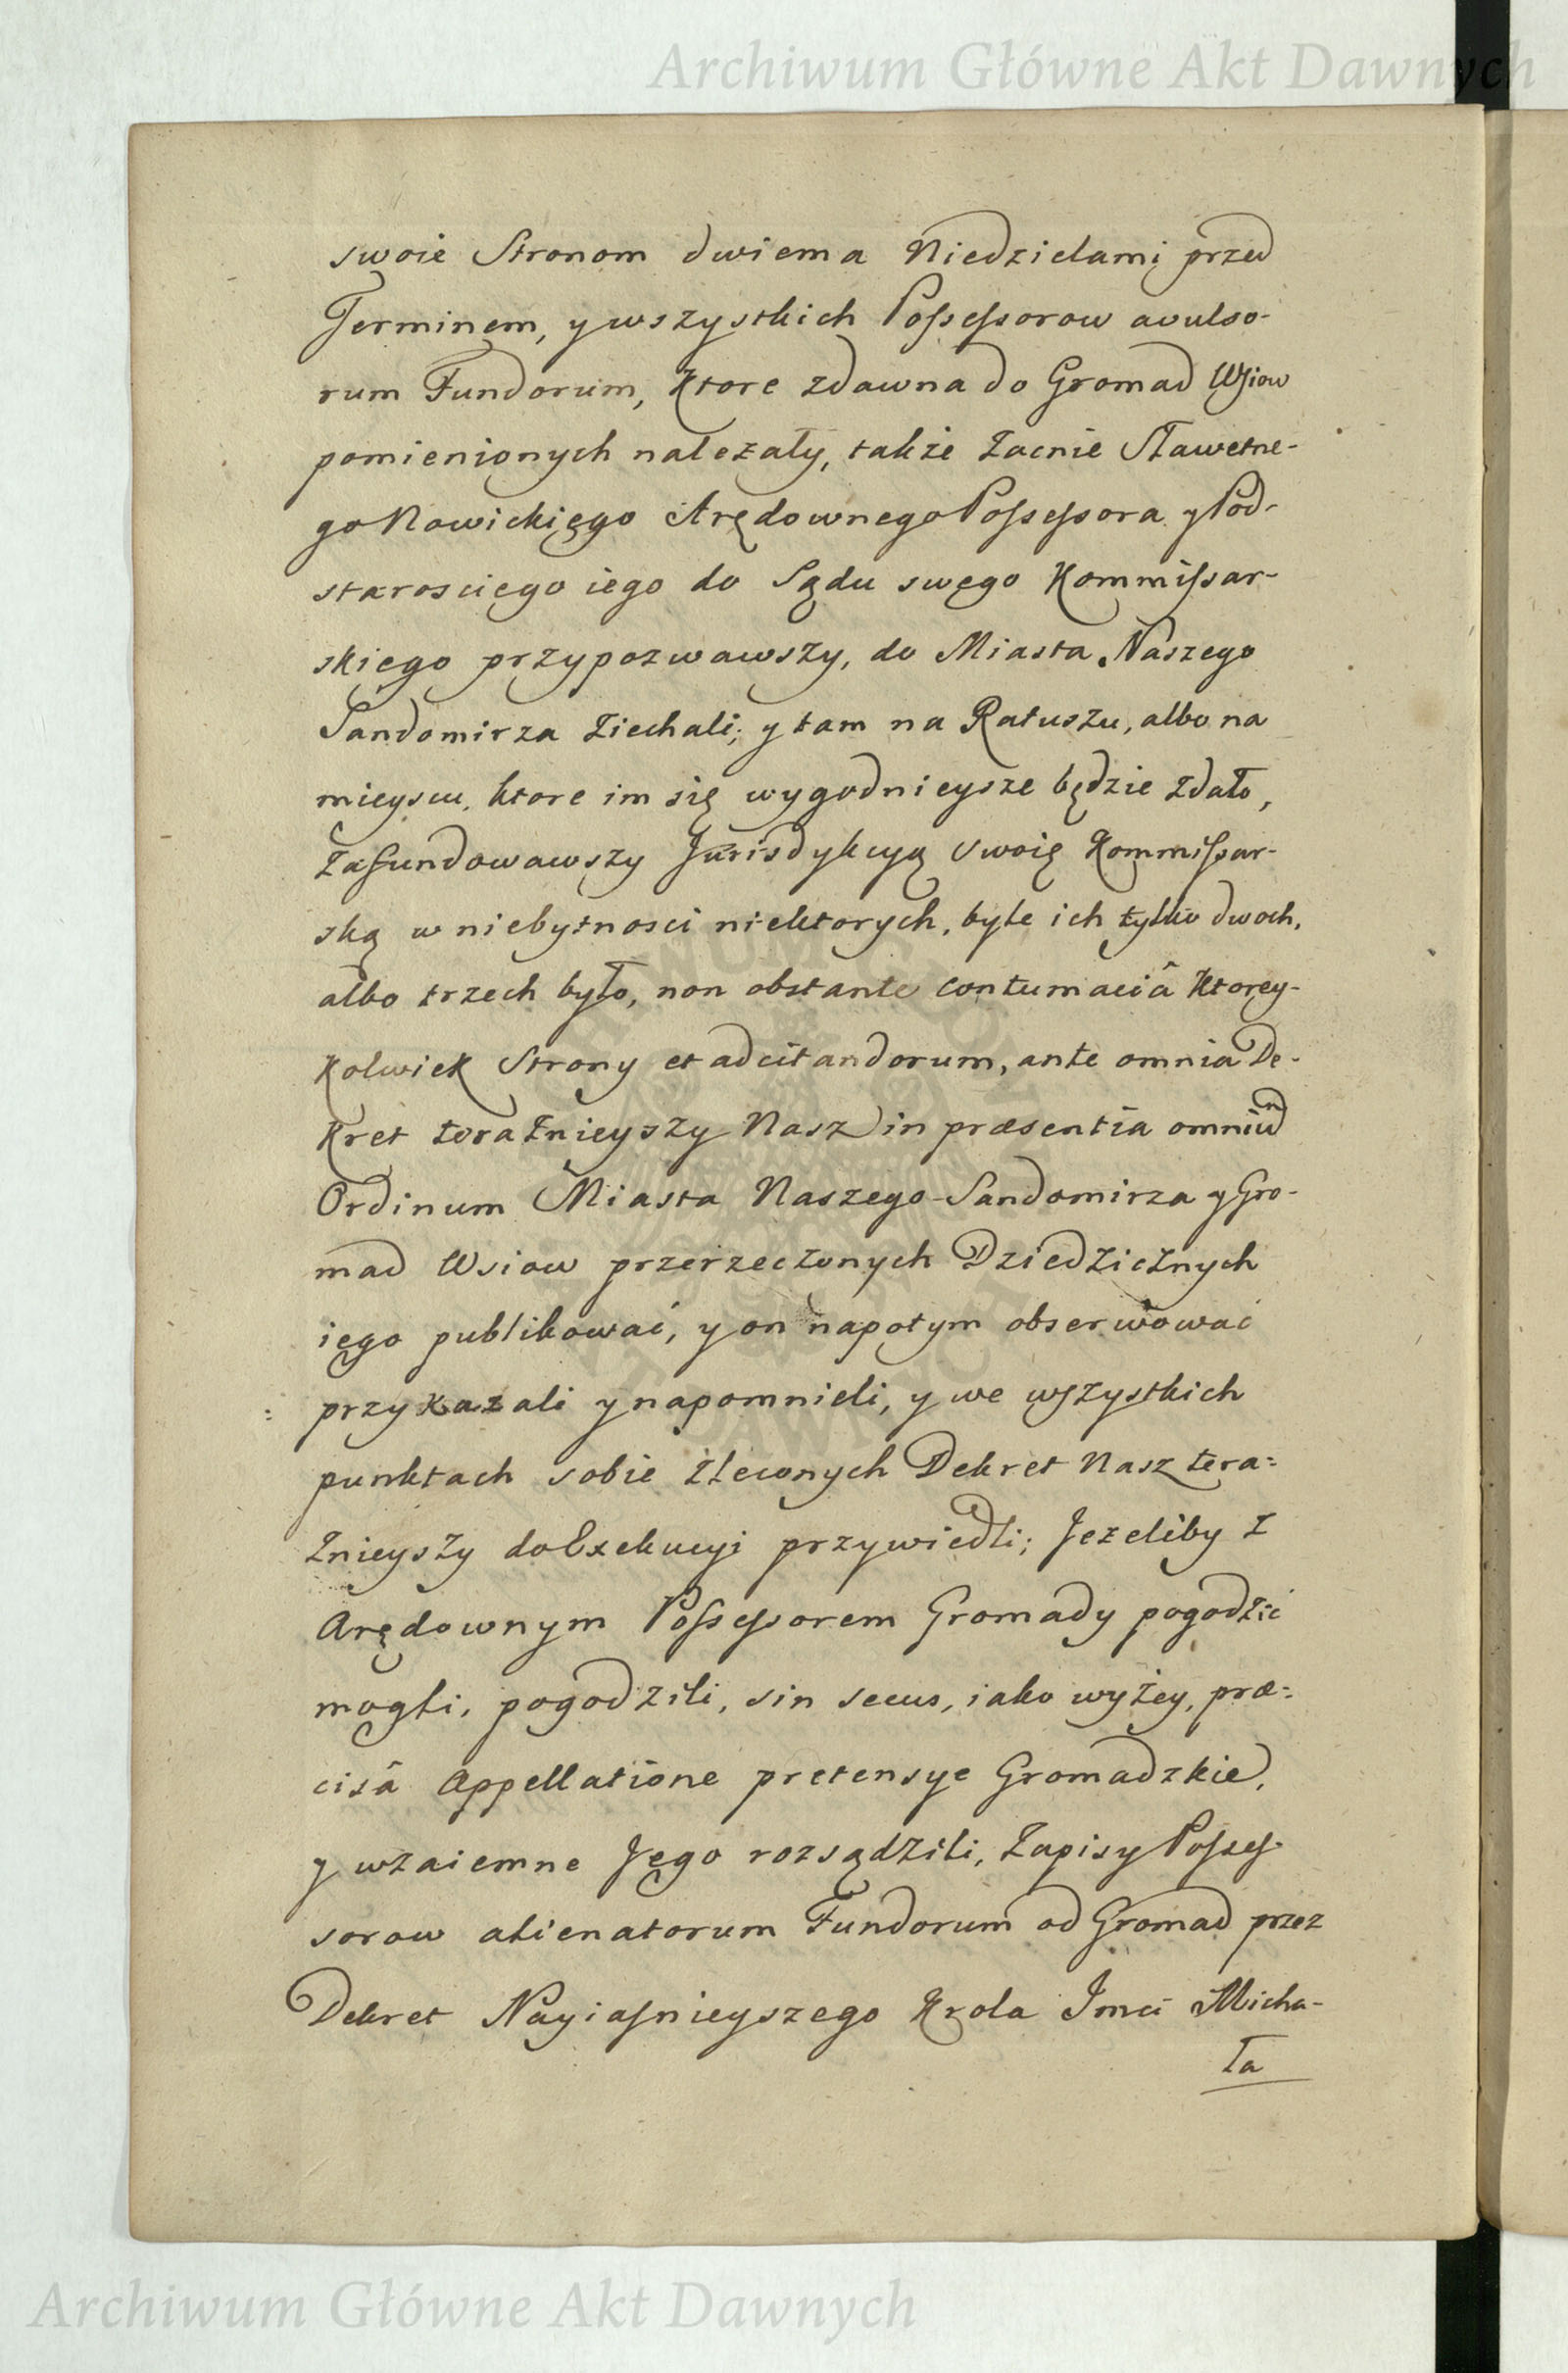 Archiwum Główne Akt Dawnych
swoie Stronom dwiema Niedzielami przed
Terminem, y wszystkich Possessorow avulso-
rum Fundorum, ktore zdawna do Gromad Wsiow
pomienionych należały, także Zacnie Sławetne-
go Nowickiego Arędownego Possessora y Pod-
starosciego iego do Sądu swego Kommissar-
skiego przypozwawszy, do Miasta Naszego
Sandomirza ziechali; y tam na Ratuszu, albo na
mieyscu, ktore im się wygodnieysze będzie zdało,
zafundowawszy Jurisdykcyą swoię Kommissar-
ską w niebytnosci niektorych, byle ich tylko dwoch,
albo trzech było, non obstante contumaciâ ktorey-
kolwiek Strony et adcitandorum, ante omnia De-
kret teraznieyszy Nasz in præsentia omniũ
Ordinum Miasta Naszego Sandomirza y Gro-
mad Wsiow przerzeczonych Dziedzicznych
iego publikować, y on napotym obserwować
przykazali y napomnieli, y we wszystkich
punktach sobie zleconych Dekret Nasz tera=
znieyszy do Exekucyi przywiedli; Jezeliby z
Arędownym Possessorem Gromady pogodzić
mogli, pogodzili, sin secus, iako wyżey, præ=
cisâ Appellatione pretensye Gromadzkie,
y wzaiemne Jego rozsądzili, Zapisy Posses-
sorow alienatorum Fundorum od Gromad przez
Dekret Nayiasnieyszego Krola Jmci Micha-
ła
Archiwum Główne Akt Dawnych